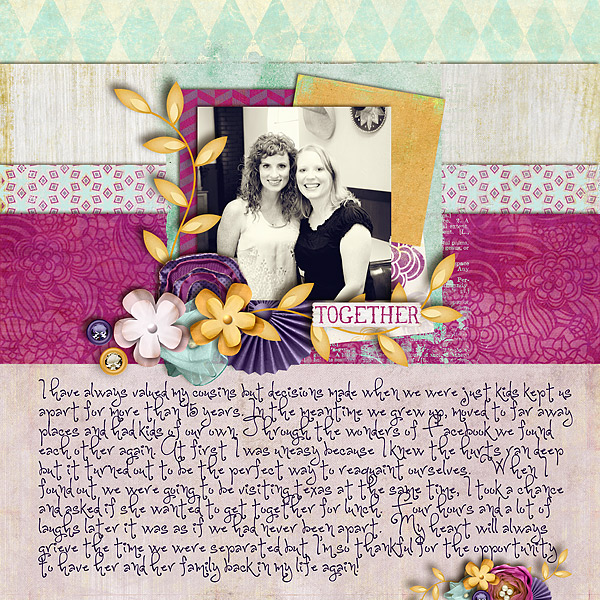 TOGETHER
I have always valued my cousins but decisions made when we were just kids kept us
apart for more than 15 years. In the meantime we grew up, moved to far away
places and had kids of our own. Through the wonders of Facebook we found
each other again. At first I was uneasy because I knew the hurts ran deep
but it turned out to be the perfect way to reaquaint ourselves. When I
found out we were going to be visiting Texas at the same time, I took a chance
and asked if she wanted to get together for lunch. Four hours and a lot of
laughs later it was as if we had never been apart. My heart will always
grieve the time we were separated but I'm so thankful for the opportunity
to have her and her family back in my life again!